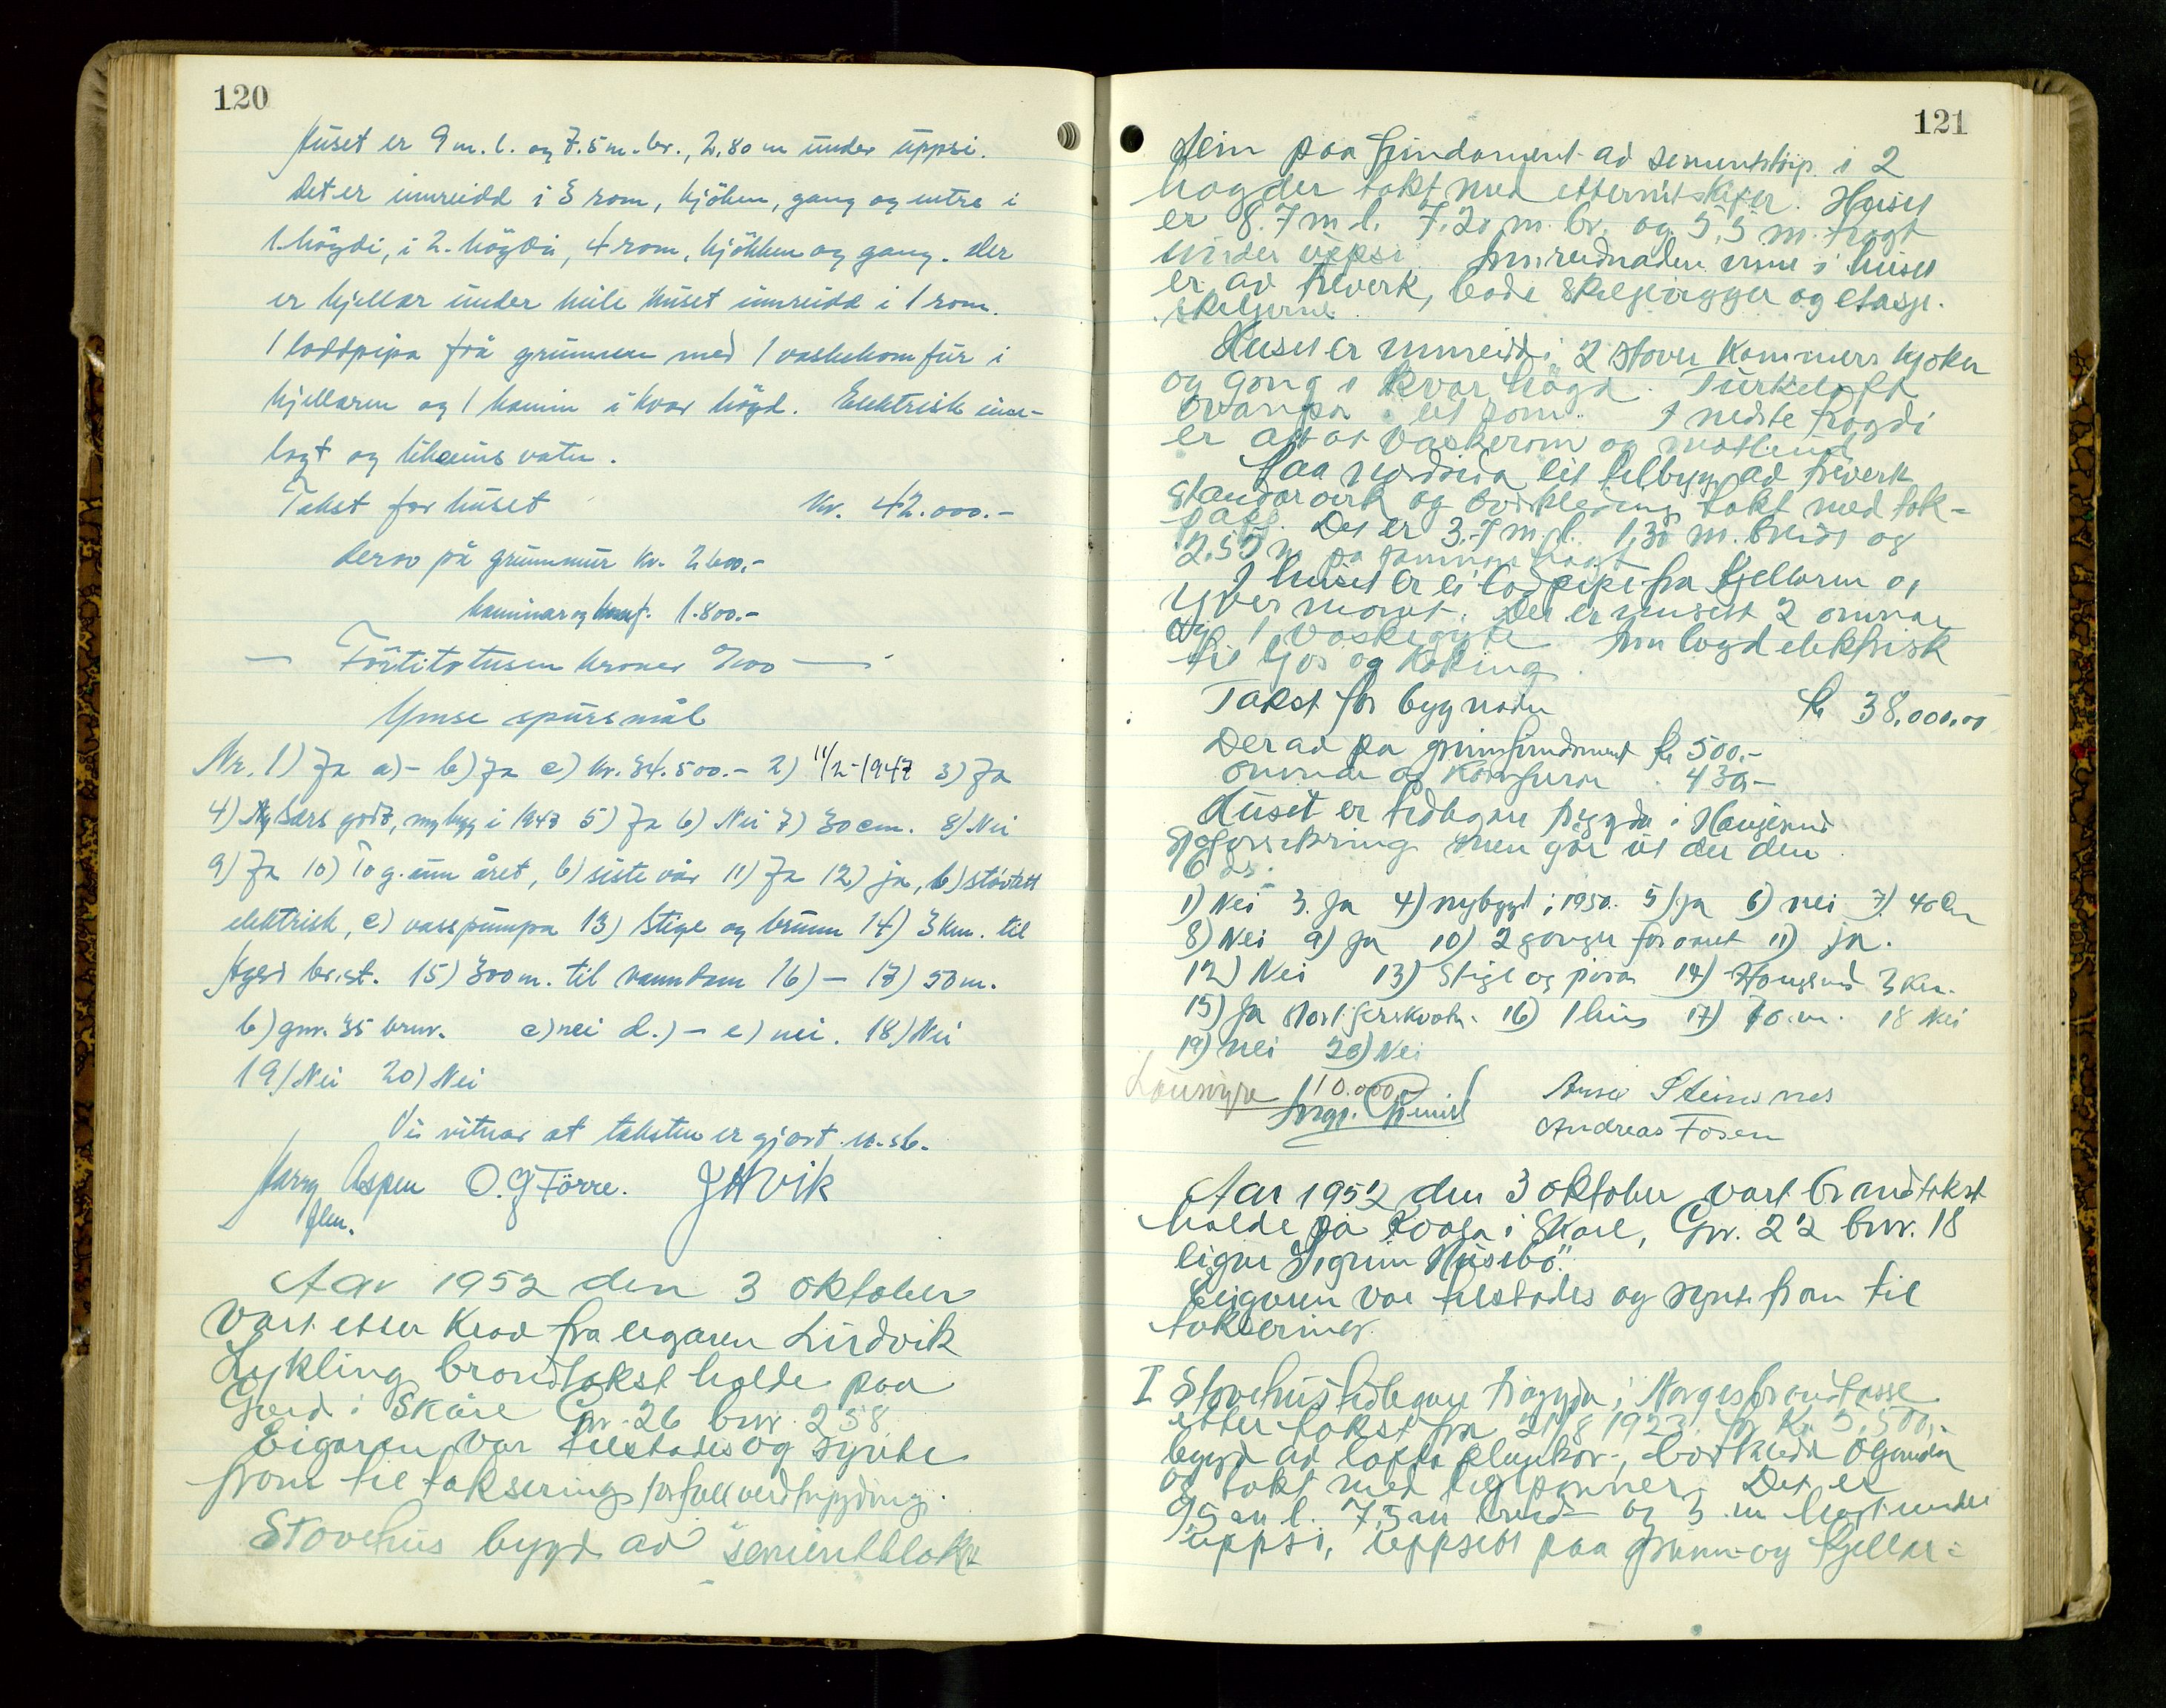 120
Huset er 9 m. l. og 7.5 m. br., 2,80 m under uppsi.
Det er innreidd i 3 rom, kjöken, gang og entre i
1. högdi, i 2. högdi, 4 rom, kjökken og gang. Der
er kjellar under heile huset innreidd i 1 rom.
1 loddpipa frå grunnen med 1 vaskekomfur i
kjellaren og 1 kamin i kvar högd. Elektrisk inn-
lagt og likeeins vatn.
Takst for huset kr. 42.000.-
derav på grunnmur kr. 2600.-
kaminar og komf. 1.800.-
— Förtitotusen kroner 0/00 —
Ymse spursmål
Nr. 1) Ja a) - b) Ja c) kr. 34.500.- 2) 11/2-1947 3) Ja
4) Særs godt, nybygg i 1947 5) Ja 6) Nei 7) 30 cm. 8) Nei
9) Ja 10) To g. um året, b) siste vår 11) Ja 12) ja, b) stövtett
elektrisk, c) vasspumpa 13) Stige og brunn 14) 3 km. til
Hgsd br.st. 15) 300 m. til vanndam 16) — 17) 50 m.
b) gnr. 35 brnr. c) nei d.) - e) nei. 18) Nei
19) Nei 20) Nei
Vi vitnar at taksten er gjort u. sb.
Harry Aspen O. G Förre. J H Vik
Aar 1952 den 3 oktober
vart etter krav fra eigaren Ludvik
Lykling brandtakst halde paa
Gard i Skåre Gnr. 26 bnr. 258
Eigaren var tilstades og synte
fram til taksering for full verdtrygding.
Stovehus bygd av sementblokk
121
stein paa fundament av sementstøp i 2
høgder takt med etternitskifer. Huset
er 8.7 m l. 7.20 m. br. og 5,5 m. høgt
under uppsi Innreidnaden inne i huset
er av treverk, bode skiljevegger og etasje-
skiljerne
Huset er innreidd i 2 stover kammers kjøken
og gong i kvar høgd. Turkeloft
ovanpå eit rom. I nedste høgdi
er att at vaskerom og matbud
Paa nordsida eit tilbygg av treverk
standarverk og bordkledning takt med tak-
papp. Det er 3.7 m. l. 1,30 m. breidt og
2.50 m på høgt
I huset er ei lodpipe fra kjellaren og
yver mønet. Det er innsett 2 omnar
og 1 vaskegryte Innlagd elektrisk
til ljos og koking
Takst for bygnaden kr 38.000,00
Derav på grunnfundament kr 500.-
omnar og komfurar 430,-
Huset er tidlegare trygda i Haugesund
Sjøforsikring men går ut der den
6 ds.
1) Nei 3. Ja 4) nybygd i 1950. 5) Ja 6) nei 7) 40 cm
8) Nei 9) Ja 10) 2 gonger for aaret 11) ja.
12) Nei 13) Stige og 14) Haugesund 3 km.
15) Ja stort ferskvatn. 16) 1 hus 17) 70 m. 18 Nei
19) nei 20) Nei
110.000,- Arne Steinsnes
Andreas Fosen
Aar 1952 den 3 oktober vart brandtakst
halde på Kvala i Skåre, Gnr. 22 bnr. 18
eigar Sigrun Husebö.
Eigaren var tilstades og synte fram til
taksering.
I Stovehus tidlegare trygda i Norges brandkasse
etter takst fra 21/8 1923 for Kr 5,500,-
bygd av lafta plankar, bordkledd ogandi
og takt med teglpanner. Det er
9,5 m l. 7,5 m breidt og 5 m høgt under
uppsi, uppsett paa grunn- og kjellar=